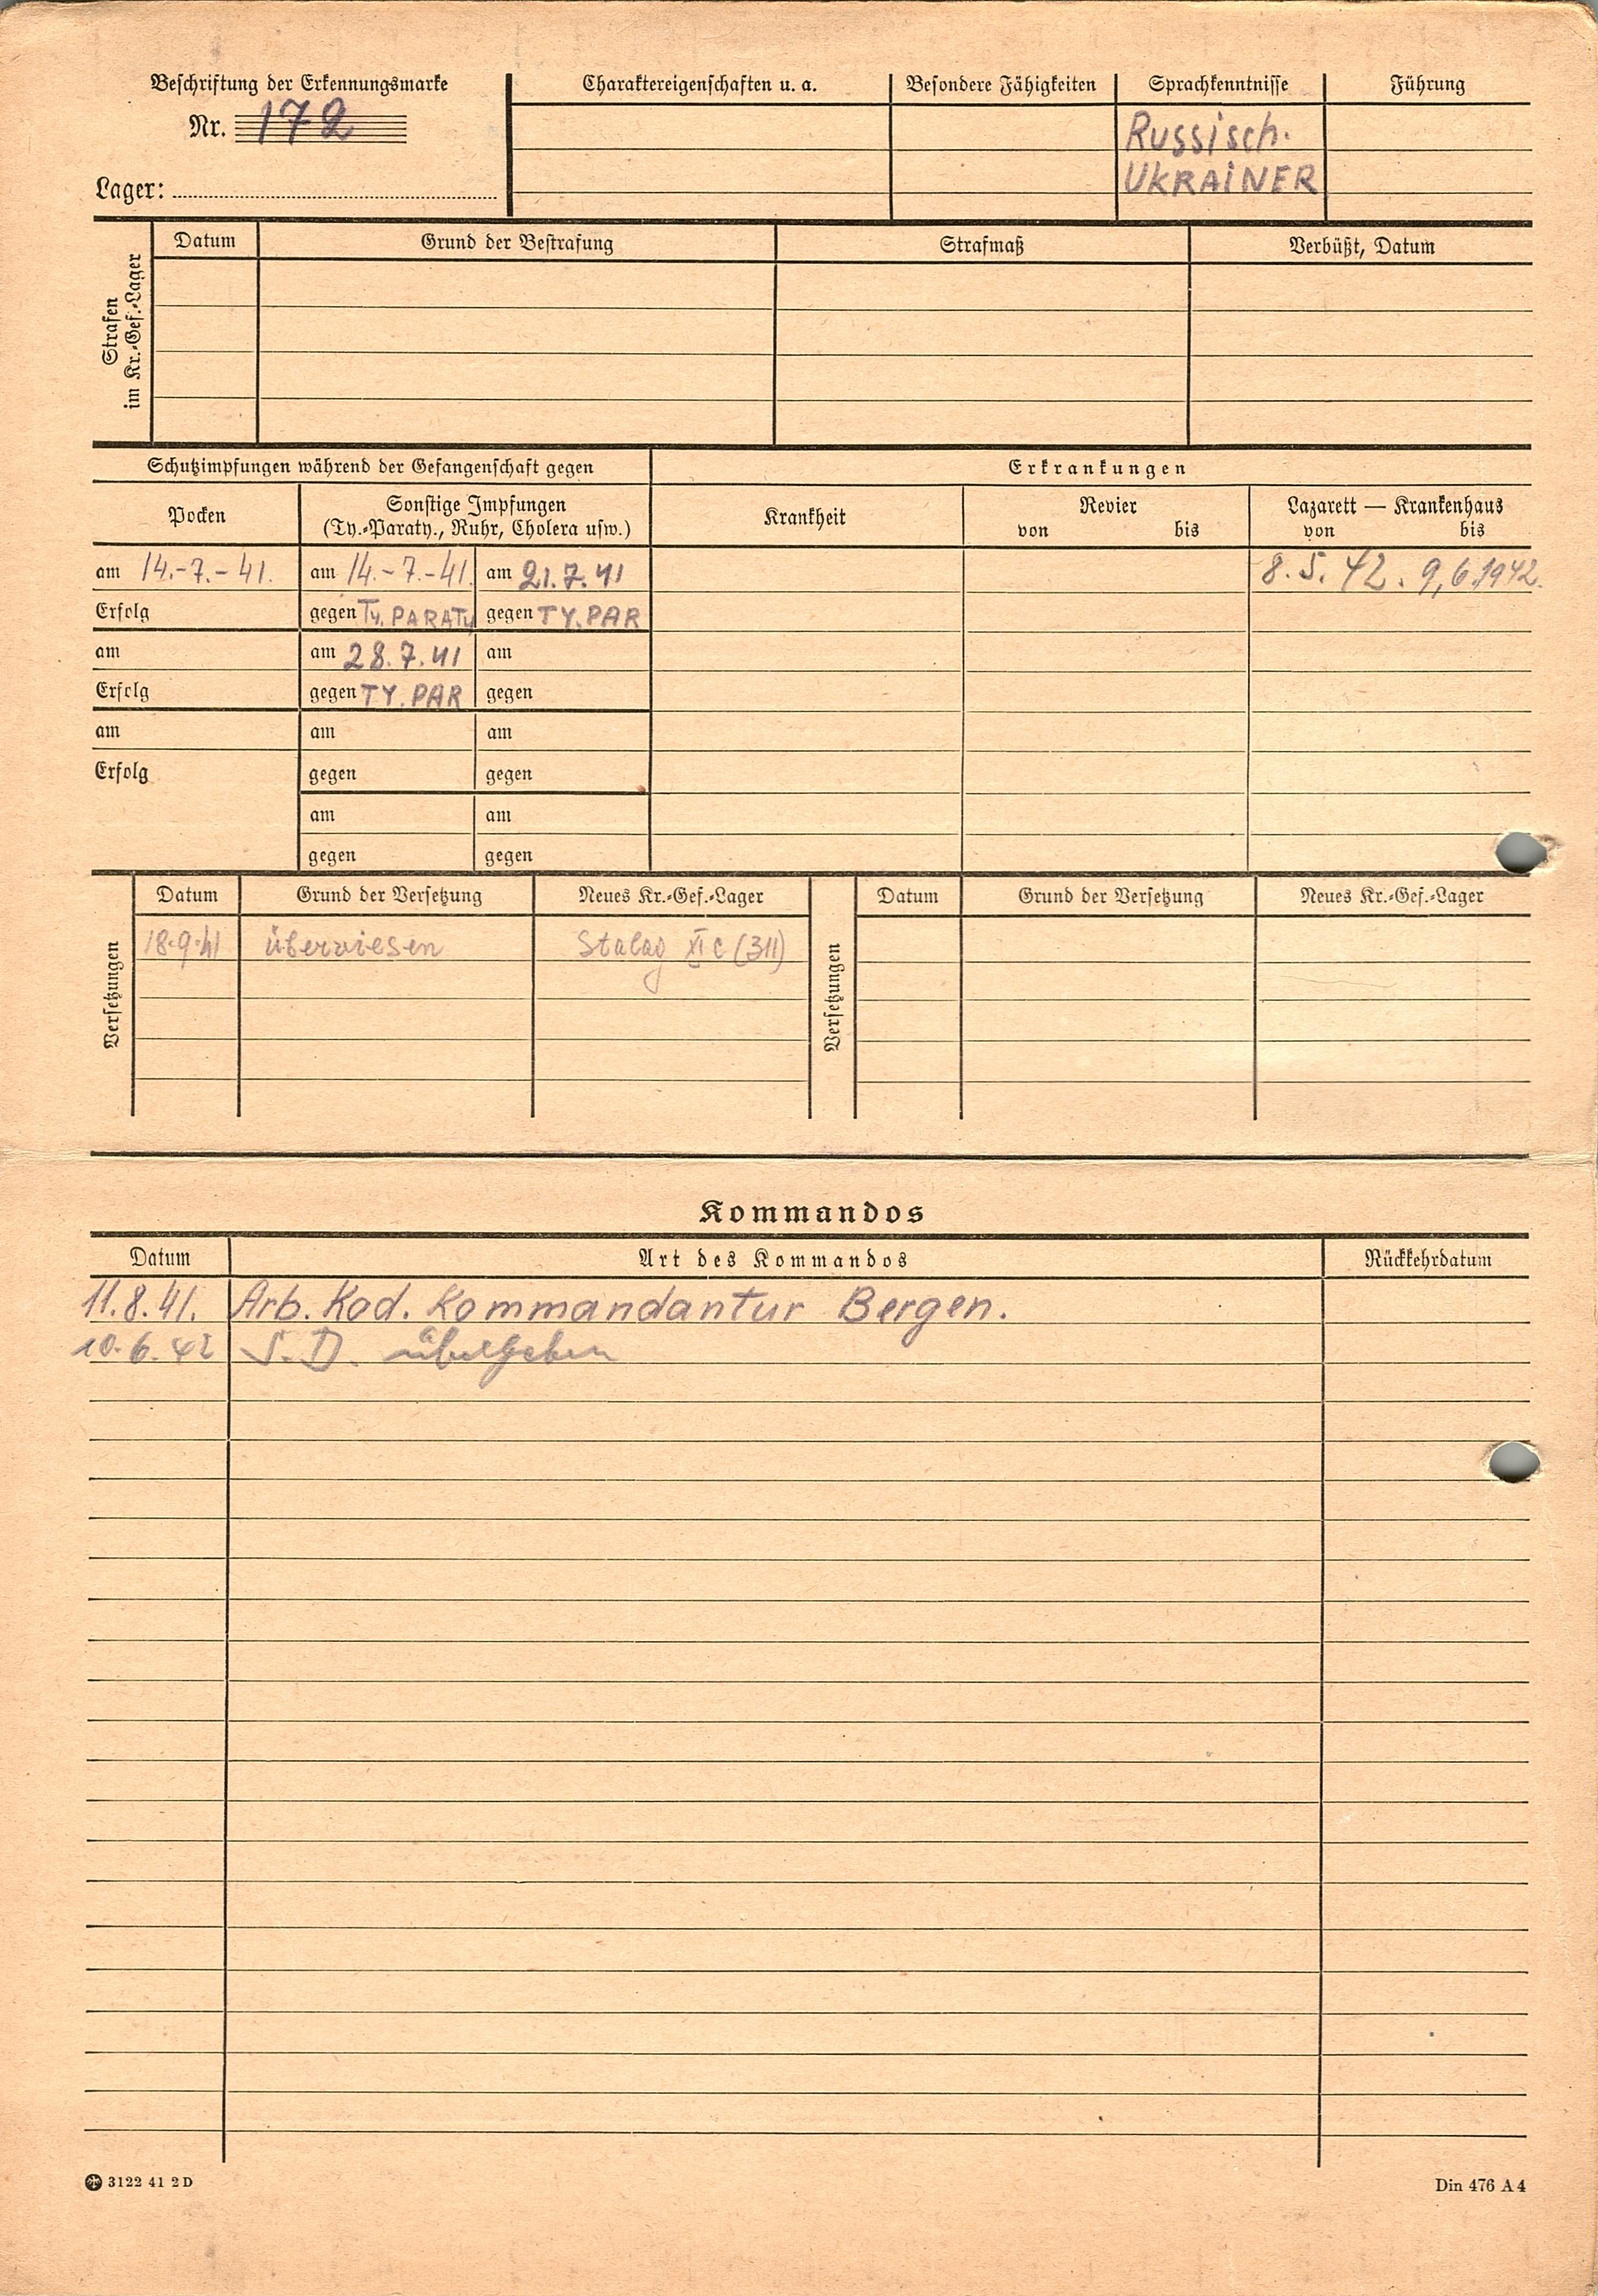 Beschriftung der Erkennungsmarke
Nr. 172
Lager:
Charaktereigenschaften u. a. Besondere Fähigkeiten Sprachkenntnisse Führung
Russisch.
UKRAiNER
Strafen
im Kr.-Gef.-Lager
Datum Grund der Bestrafung Strafmaß Verbüßt, Datum
Schutzimpfungen während der Gefangenschaft gegen Erkrankungen
Pocken Sonstige Impfungen
(Ty.-Paraty., Ruhr, Cholera usw.)
Krankheit Revier
von bis
Lazarett — Krankenhaus
von bis
am 14.-7.-41. am 14.-7.-41. am 21.7.41 8.5.42. 9,6.1942.
Erfolg gegen Ty. PARATy gegen TY.PAR
am am 28.7.41 am
Erfolg gegen TY.PAR gegen
am am am
Erfolg gegen gegen
am am
gegen gegen
Versetzungen
Datum Grund der Versetzung Neues Kr.-Gef.-Lager
18.9.41 überwiesen Stalag XI C (311)
Versetzungen
Datum Grund der Versetzung Neues Kr.-Gef.-Lager
Kommandos
Datum Art des Kommandos Rückkehrdatum
11.8.41. Arb. Kod. Kommandantur Bergen.
10.6.42 S.D. übergeben
3122 41 2 D
Din 476 A 4